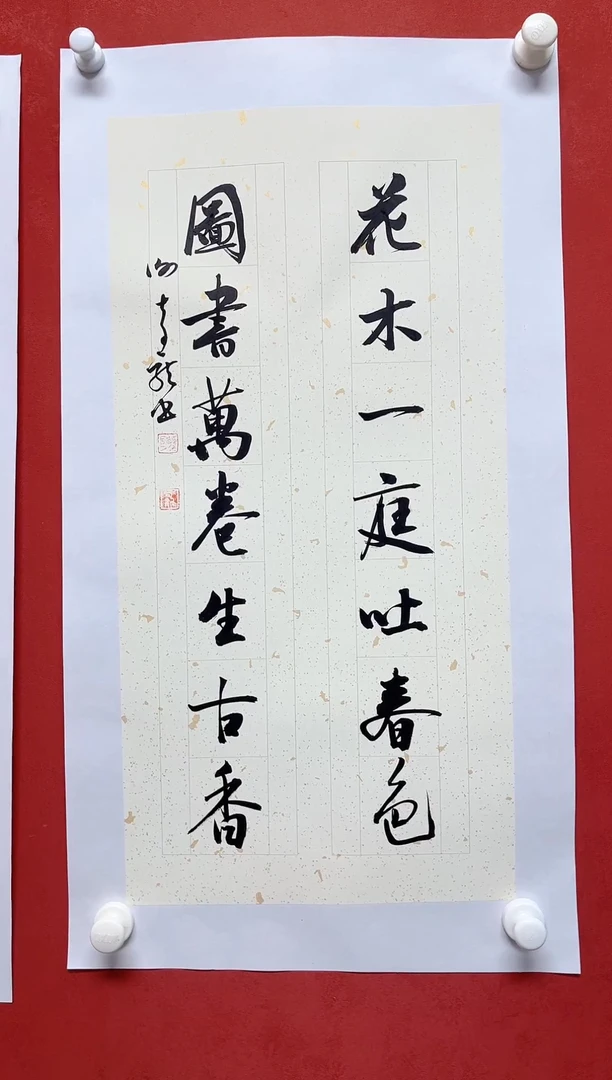 花木一庭吐春色
圖書萬卷生古香